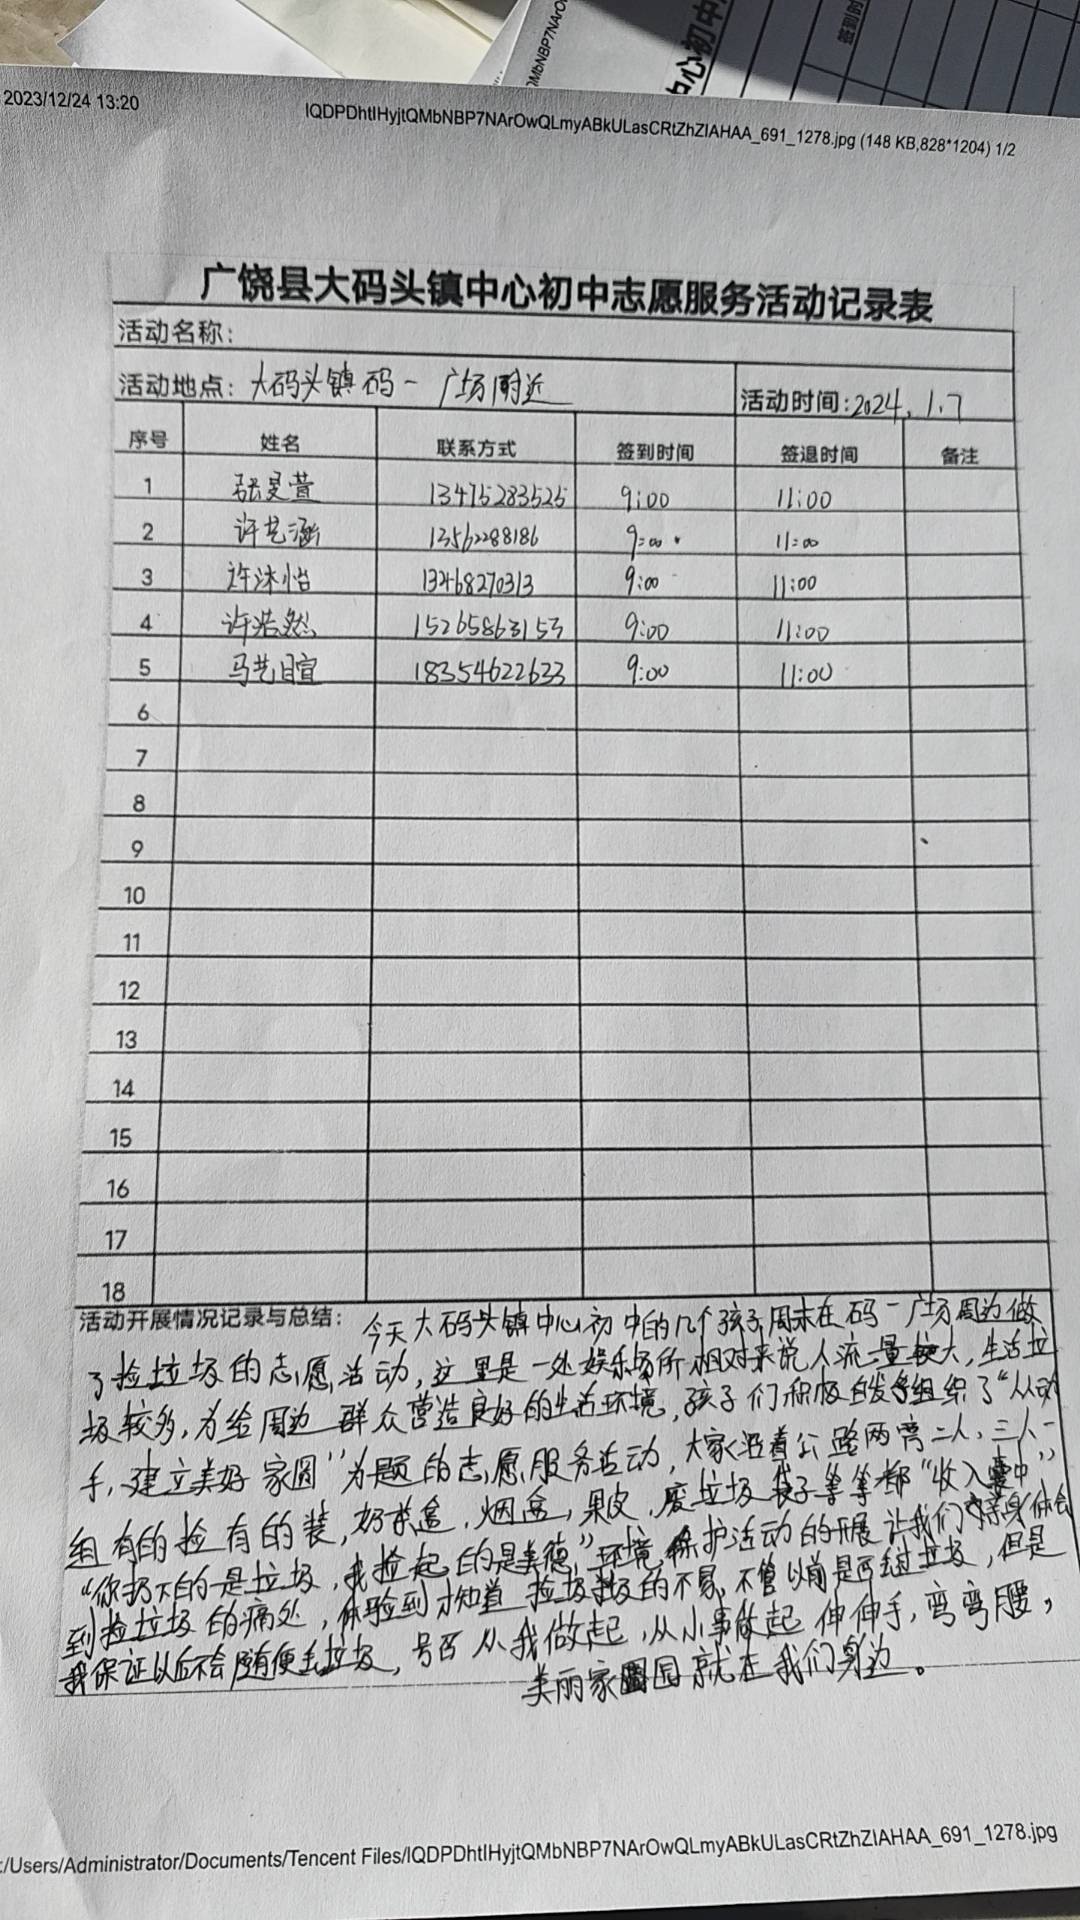 2023/12/24 13:20
IQDPDhtIHyjtQMbNBP7NArOwQLmyABkULasCRtZhZIAHAA_691_1278.jpg (148 KB,828*1204) 1/2
广饶县大码头镇中心初中志愿服务活动记录表
活动名称:
活动地点: 大码头镇码一广场附近 活动时间:2024.1.7
序号 姓名 联系方式 签到时间 签退时间 备注
1 张旻萱 13475283525 9:00 11:00
2 许艺涵 13562288186 9:00 11:00
3 许沐怡 13468270313 9:00 11:00
4 许浩然 15265863153 9:00 11:00
5 马艺暄 18354622633 9:00 11:00
6
7
8
9
10
11
12
13
14
15
16
17
18
活动开展情况记录与总结: 今天大码头镇中心初中的几个孩子周末在码一广场周边做
了捡垃圾的志愿活动,这里是一处娱乐场所相对来说人流量较大,生活垃
圾较多,为给周边群众营造良好的生活环境,孩子们积极自发组织了“从动
手,建立美好家园”为题的志愿服务活动,大家沿着公路两旁二人,三人一
组有的捡有的装,奶茶盒,烟盒,果皮,废垃圾袋子等等都“收入囊中”
“你扔下的是垃圾,我捡起的是美德”,环境保护活动的开展让我们亲身体会
到捡垃圾的痛处,体验到才知道捡垃圾的不易,不管以前是否丢过垃圾,但是
我保证以后不会随便丢垃圾,号召从我做起,从小事做起伸伸手,弯弯腰,
美丽家园就在我们身边。
:/Users/Administrator/Documents/Tencent Files/IQDPDhtIHyjtQMbNBP7NArOwQLmyABkULasCRtZhZIAHAA_691_1278.jpg